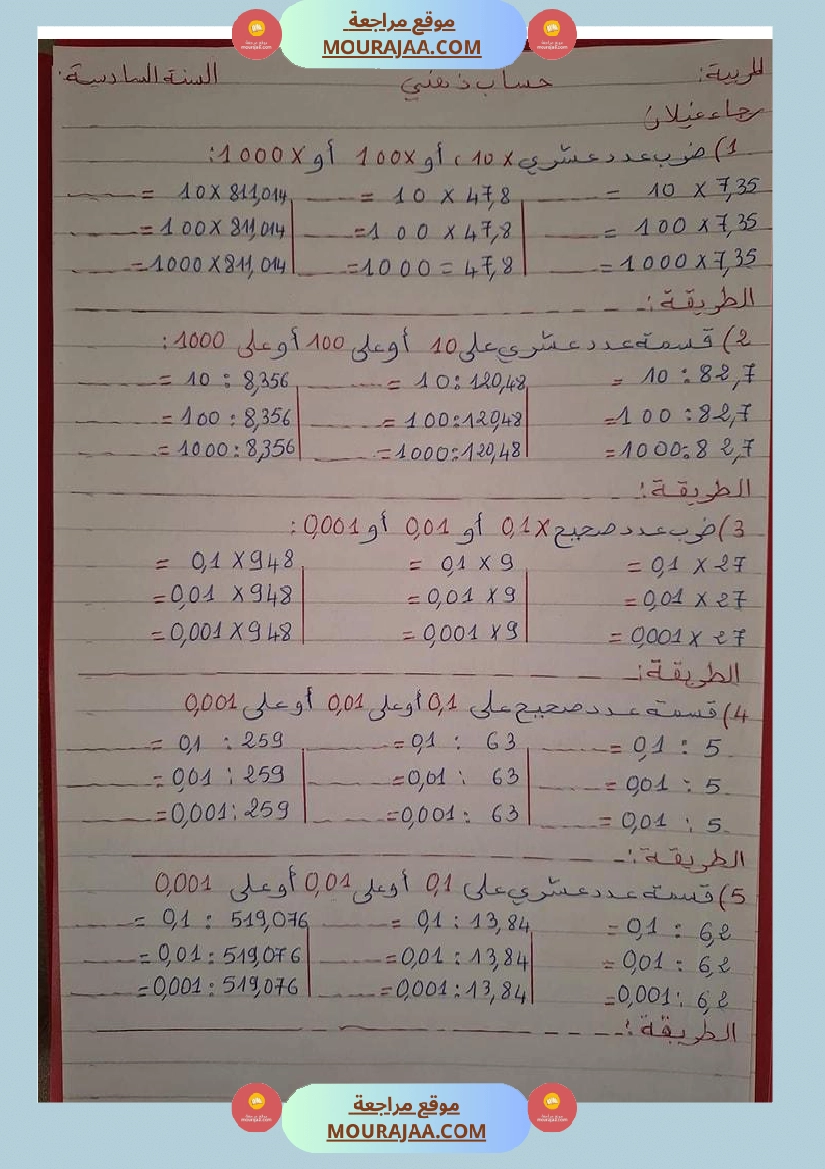 موقع مراجعة
MOURAJAA.COM
المربية: حساب ذهني السنة السادسة:
رجاء غيلان
1) ضرب عدد عشري x 10، أو 100x أو 1000x:
7,35 x 10 = 47,8 x 10 = 811,014 x 10 =
7,35 x 100 = 47,8 x 100 = 811,014 x 100 =
7,35 x 1000 = 47,8 = 1000 = 811,014 x 1000 =
الطريقة:
2) قسمة عدد عشري على 10 أو على 100 أو على 1000:
82,7 : 10 = 120,48 : 10 = 8,356 : 10 =
82,7 : 100 = 120,48 : 100 = 8,356 : 100 =
82,7 : 1000 = 120,48 : 1000 = 8,356 : 1000 =
الطريقة:
3) ضرب عدد صحيح x 0,1 أو 0,01 أو 0,001:
27 x 0,1 = 9 x 0,1 = 948 x 0,1 =
27 x 0,01 = 9 x 0,01 = 948 x 0,01 =
27 x 0,001 = 9 x 0,001 = 948 x 0,001 =
الطريقة:
4) قسمة عدد صحيح على 0,1 أو على 0,01 أو على 0,001
5 : 0,1 = 63 : 0,1 = 259 : 0,1 =
5 : 0,01 = 63 : 0,01 = 259 : 0,01 =
5 : 0,01 = 63 : 0,001 = 259 : 0,001 =
الطريقة:
5) قسمة عدد عشري على 0,1 أو على 0,01 أو على 0,001
6,2 : 0,1 = 13,84 : 0,1 = 519,076 : 0,1 =
6,2 : 0,01 = 13,84 : 0,01 = 519,076 : 0,01 =
6,2 : 0,001 = 13,84 : 0,001 = 519,076 : 0,001 =
الطريقة:
موقع مراجعة
MOURAJAA.COM